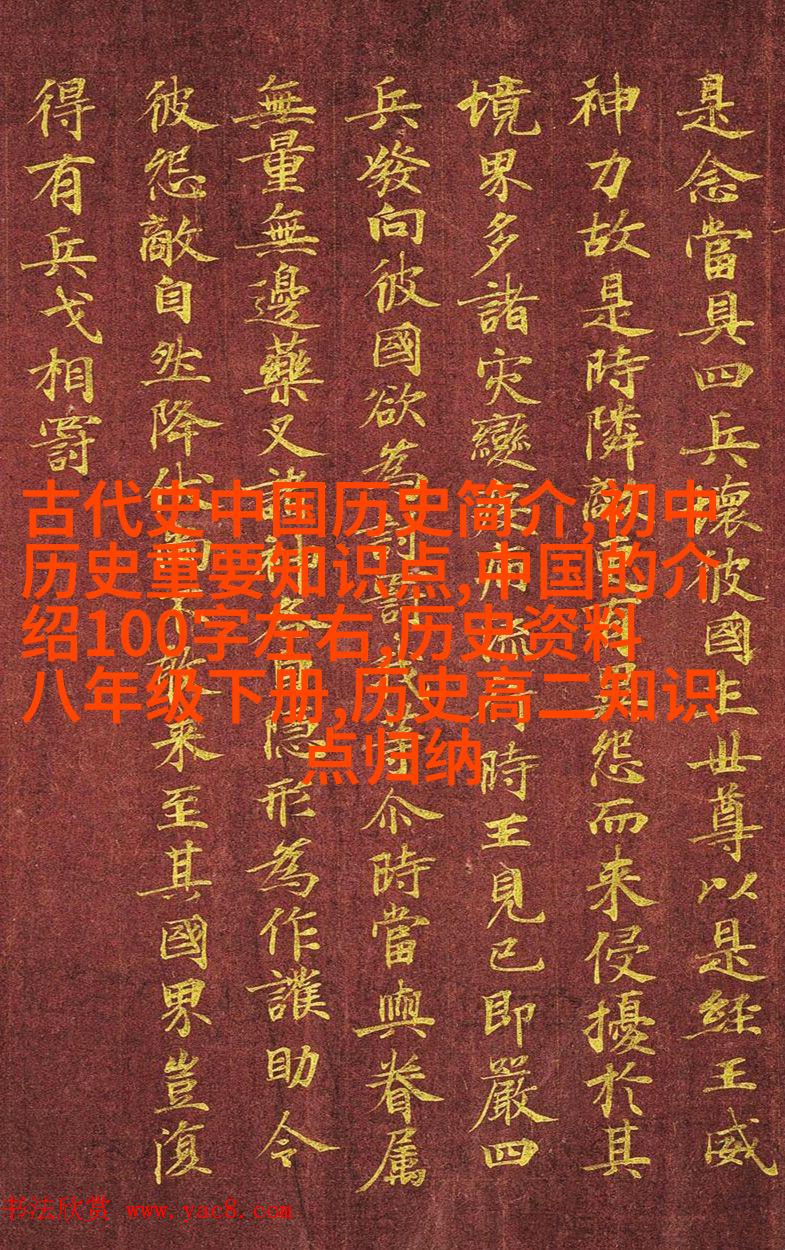 是念當具四兵壞彼國土世尊以是經王威
神力故是時隣敵更有異怨而来侵擾於其
境界多諸灾變流時王見已即嚴四
兵發向彼國欲為討罰我等尒時當與眷属
無量無邊藥叉諸神各自隱形為作護助令
彼怨敵自然降伏尚不敢来至其國界豈復
得有兵戈相罰
古代史中国历史简介,初中
历史重要知识点,中国的介
绍100字左右,历史资料
八年级下册,历史高二知识
点归纳
书法欣赏 www.yac8.com